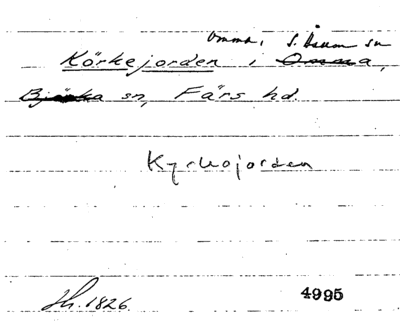 Omma, S. Åsum sn
Körkejorden i Omma,
Bjärka sn, Färs hd.
Kyrkojorden
Jh. 1826 4995